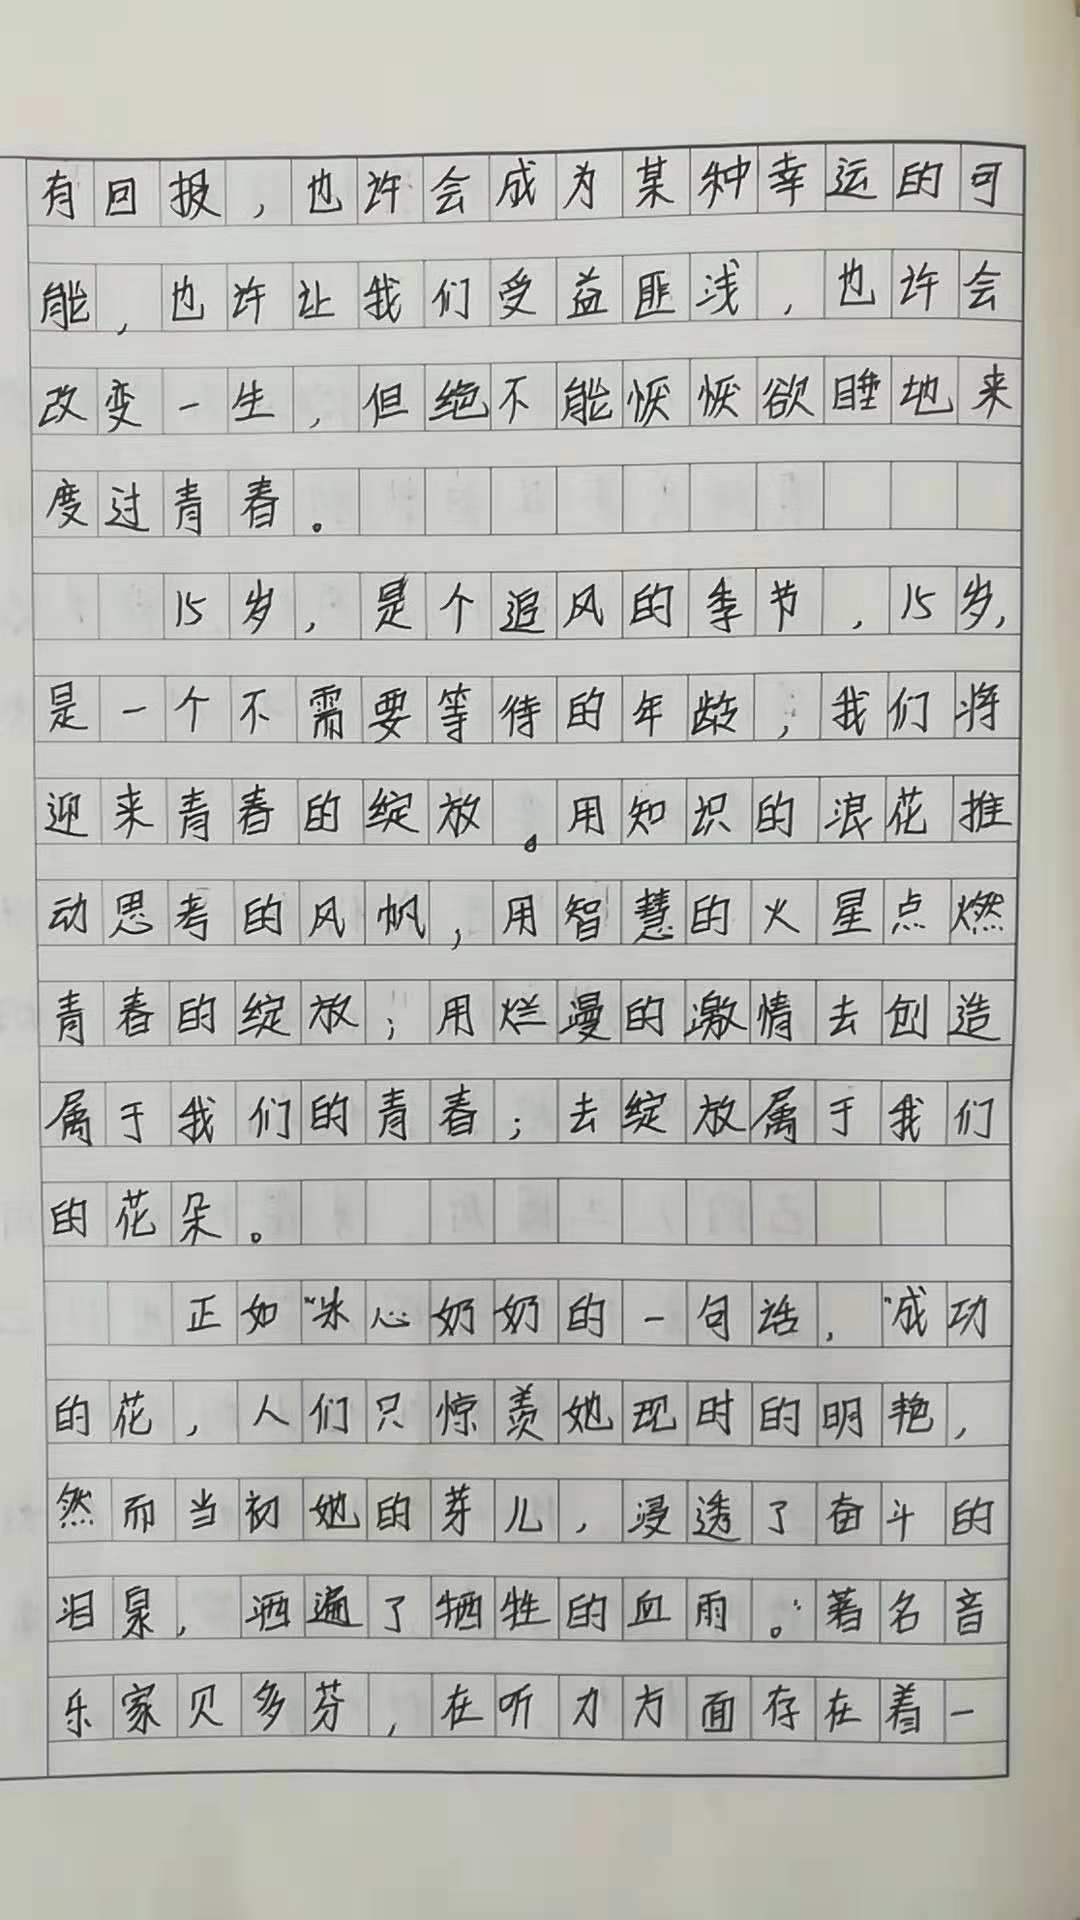 有回报，也许会成为某种幸运的可
能，也许让我们受益匪浅，也许会
改变一生，但绝不能恹恹欲睡地来
度过青春。
15岁，是个追风的季节，15岁，
是一个不需要等待的年龄，我们将
迎来青春的绽放。用知识的浪花推
动思考的风帆，用智慧的火星点燃
青春的绽放；用烂漫的激情去创造
属于我们的青春；去绽放属于我们
的花朵。
正如“冰心奶奶的一句话，“成功
的花，人们只惊羡她现时的明艳，
然而当初她的芽儿，浸透了奋斗的
泪泉，洒遍了牺牲的血雨。”著名音
乐家贝多芬，在听力方面存在着一